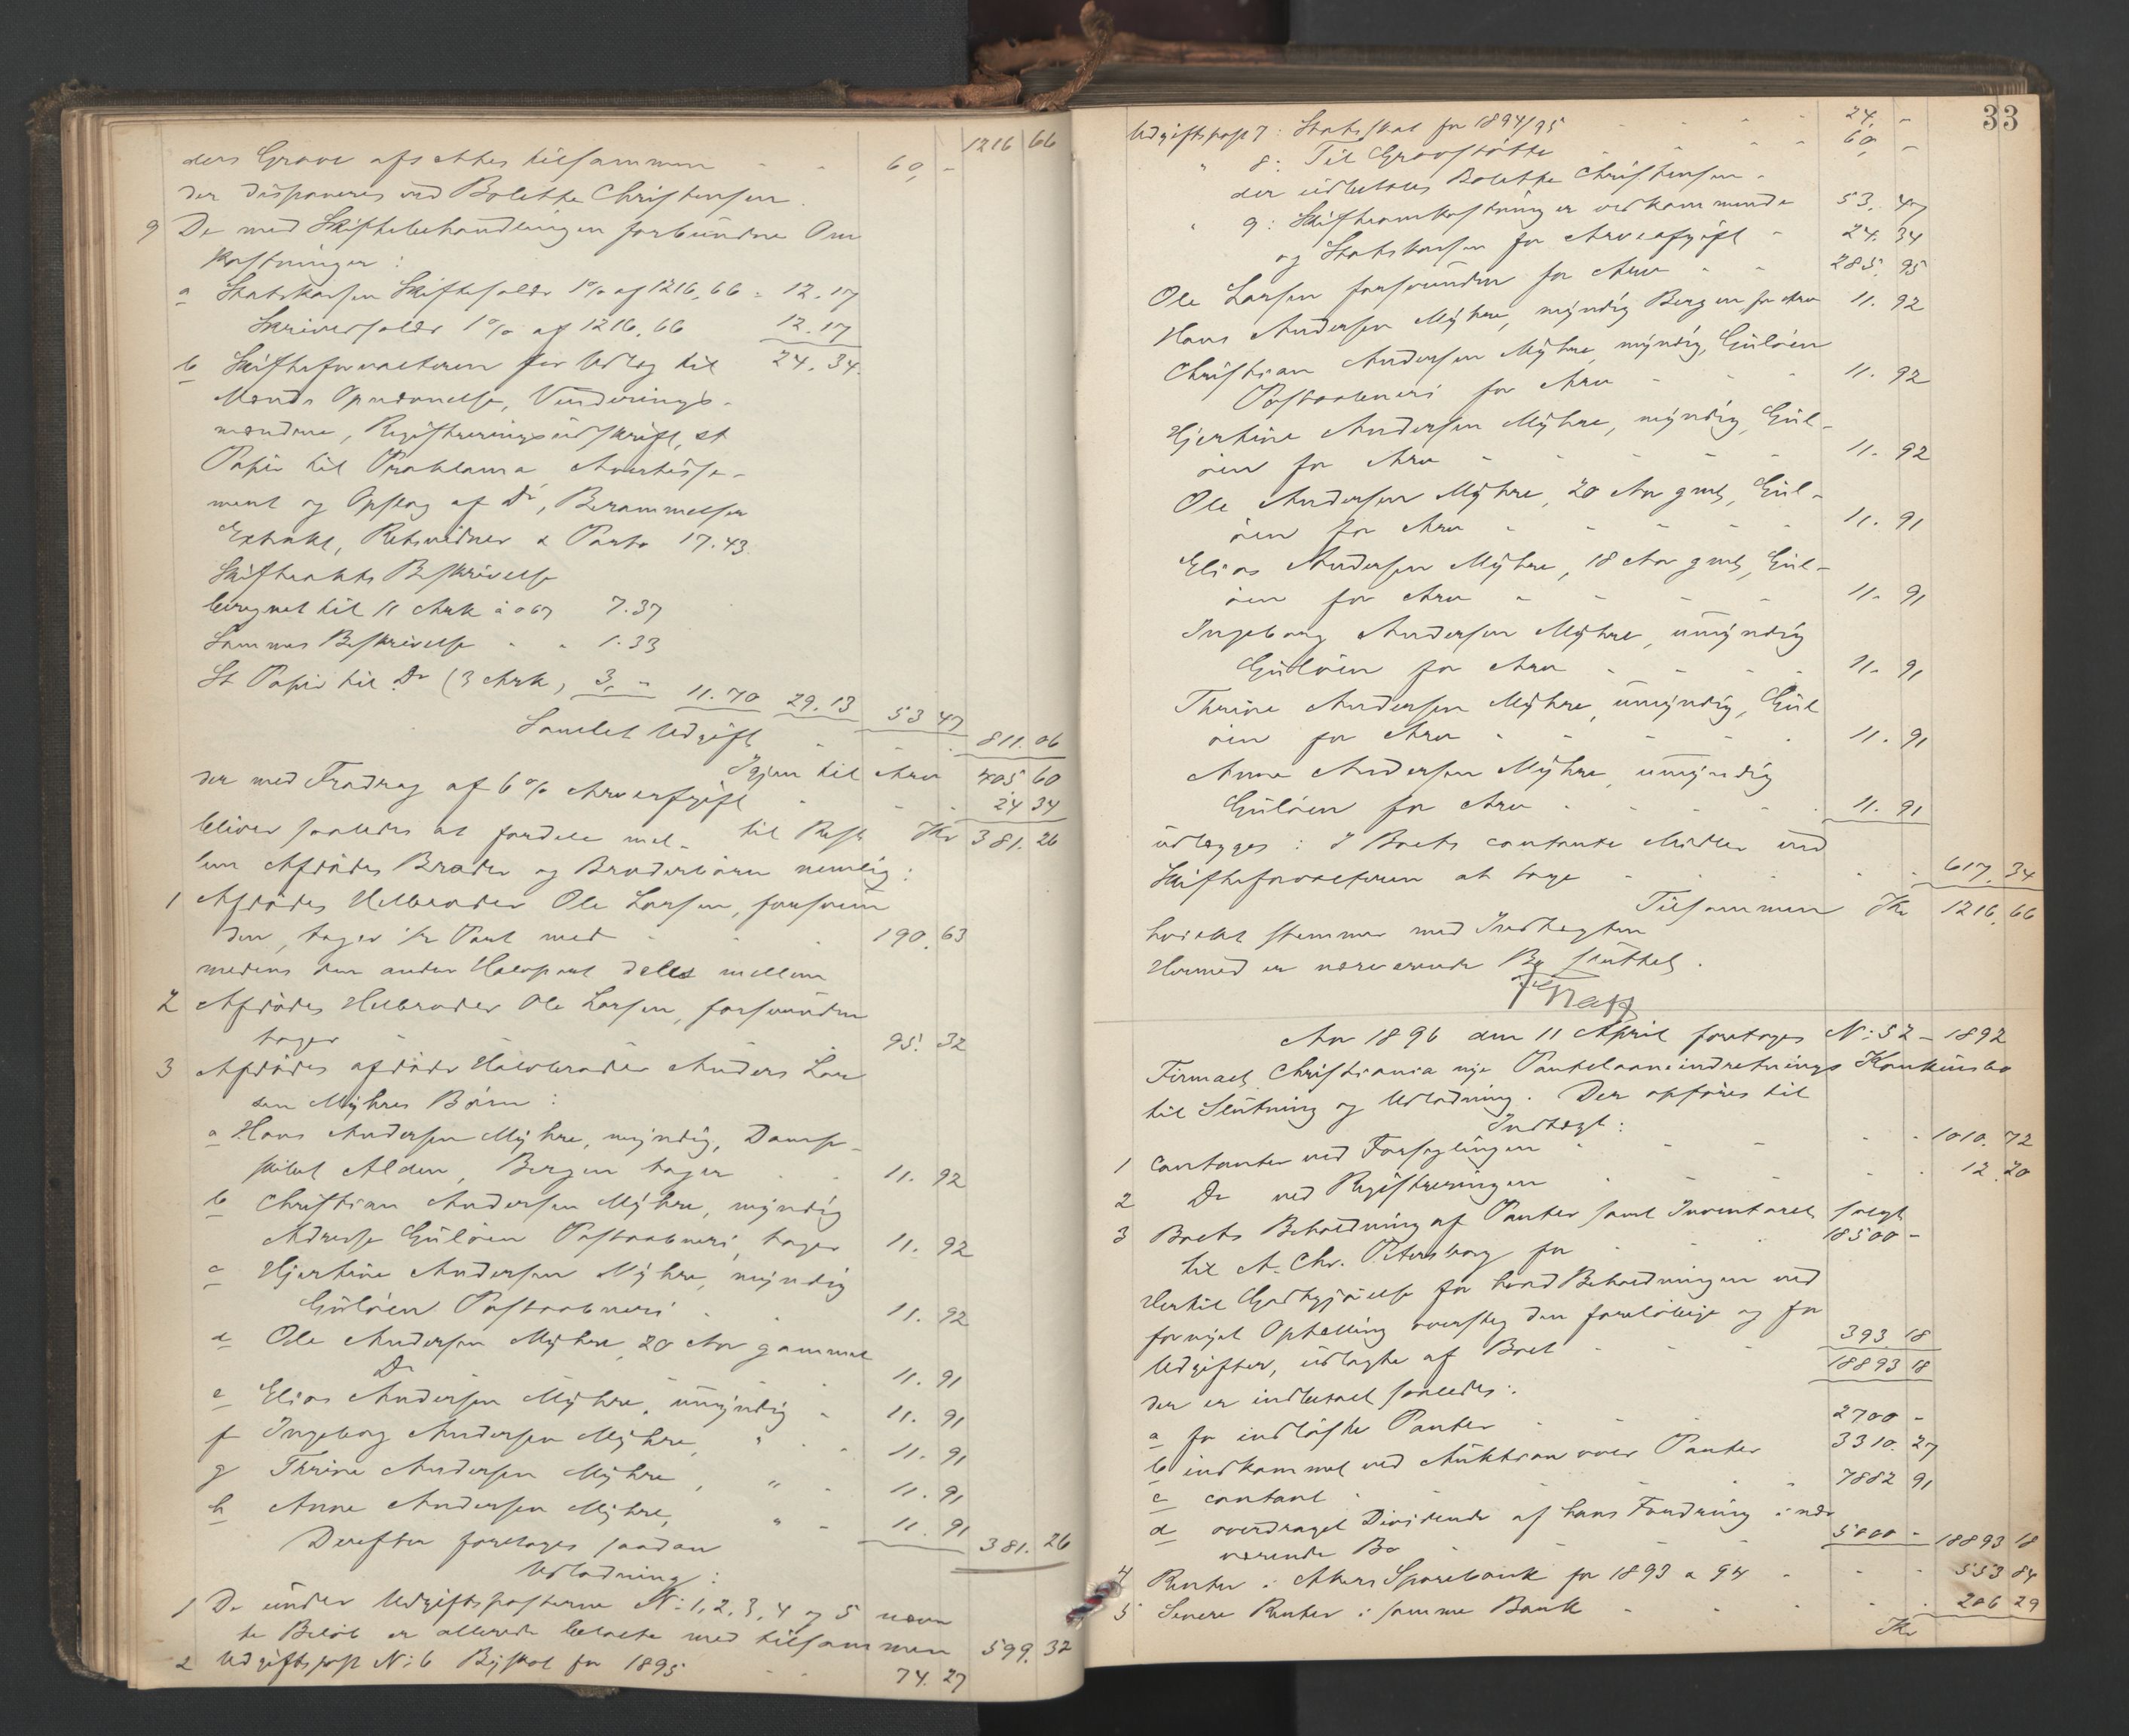 1216 66
ders Grave afsættes tilsammen - - 60, -
der disponeres ved Bolette Christensen.
9 De med Skiftebehandlingen forbundne Om
kostninger:
a Statskassen Skiftesalær 1% af 1216,66 = 12.17
Skriversalær 1% af 1216.66 12.17
24.34.
b Skifteforvalteren for Udlæg til
Mænds Opnævnelse, Vurderings-
mændene, Registreringsudskrift, st
Papir til Proklama, Avertisse-
ment og Opslag af Do, Berammelsen
Extrakt, Retsvidner & Porto 17.43.
Skifteakts Beskrivelse
beregnet til 11 Ark à 0 67 7.37
Sammes Beskrivelse - - 1.33
St. Papir til Do (3 Ark) 3, - 11.70 29.13 53 47
Samlet Udgift - - - 811.06
Igjen til Arv 405 60
der med Fradrag af 6% Arveafgift - - - 24 34
bliver saaledes at fordele mel- til Rest Kr 381.26
lem Afdødes Broder og Broderbørn nemlig:
1 Afdødes Helbroder Ole Larsen, forsvun
den, tager 1/2 Part med - - - 190.63
medens den anden Halvpart deles mellem
2 Afdødes Helbroder Ole Larsen, forsvunden
tager - 95.32
3 Afdødes afdøde Halvbroder Anders Lar
sen Myhres Børn:
a Hans Andersen Myhre, myndig, Damp-
skibet Alden, Bergen tager - - 11.92
b Christian Andersen Myhre, myndig
Adresse Guløien Postaabneri, tager 11.92
c Hjertine Andersen Myhre, myndig
Guløien Postaabneri - - 11.92
d Ole Andersen Myhre, 20 Aar gammel
Do - 11.91
e Elias Andersen Myhre, umyndig - 11.91
f Ingeborg Andersen Myhre, " - - 11.91
g Thrine Andersen Myhre, " - 11.91
h Anne Andersen Myhre, " - 11.91 381.26
Derefter foretages saadan
Udlodning:
1 De under Udgiftsposterne No 1, 2, 3, 4 og 5 nævn
te Beløb er allerede betalte med tilsammen 599.32
2 Udgiftspost No 6 Byskat for 1895 - - 74.27
33
Udgiftspost 7: Statsskat for 1894/95 - - - - 24. -
" 8: Til Gravstøtte - - - - 60, -
der udbetales Bolette Christensen -
" 9: Skifteomkostninger vedkommende 53.47
og Statskassen for Arveafgift - 24.34
Ole Larsen forsvunden for Arv - - 285.95
Hans Andersen Myhre, myndig Bergen for Arv 11.92
Christian Andersen Myhre, myndig, Guløien
Postaabneri for Arv - - - 11.92
Hjertine Andersen Myhre, myndig, Gul-
øien for Arv - - - - - 11.92
Ole Andersen Myhre, 20 Aar gml, Gul-
øien for Arv - - - - - 11.91
Elias Andersen Myhre, 18 Aar gml, Gul-
øien for Arv - - - - 11.91
Ingeborg Andersen Myhre, umyndig
Guløien for Arv - - - - 11.91
Thrine Andersen Myhre, umyndig, Gul
øien for Arv - - - - - 11.91
Anne Andersen Myhre, umyndig
Guløien for Arv - - - - - 11.91
udlægges: I Boets contante Midler ved
Skifteforvalteren at tage - - - - - 617.34
Tilsammen Kr 1216.66
hvilket stemmer med Indtægten
Hermed er nærværende Bo sluttet.
Aar 1896 den 11 April foretoges No 52 - 1892
Firmaet Christiania nye Pantelaaneindretnings Konkursbo
til Slutning og Udlodning. Der opføres til
Indtægt:
1 Contanter ved Forseglingen - - - - 1010.72
2 Do ved Registreringen - - - 12.20
3 Boets Beholdning af Panter samt Inventariet solgt
til A. Chr. Petersborg for - - - 18500 -
Hertil Godtgjørelse for hvad Beholdningen ved
fornyet Optælling oversteg den foreløbige og for
Udgifter, udlagte af Boet - - - 393.18
18893 18
der er indbetalt saaledes:
a for indløste Panter - - - 2700 -
b indkommet ved Auktion over Panter 3310.27
c contant - - - 7882 91
d overdraget Dividende af hans Fordring i nær
værende Bo - 5000 - 18893 18
4 Renter i Akers Sparebank for 1893 & 94 - - - 553 84
5 Senere Renter i samme Bank - - - - 206 29
Kr